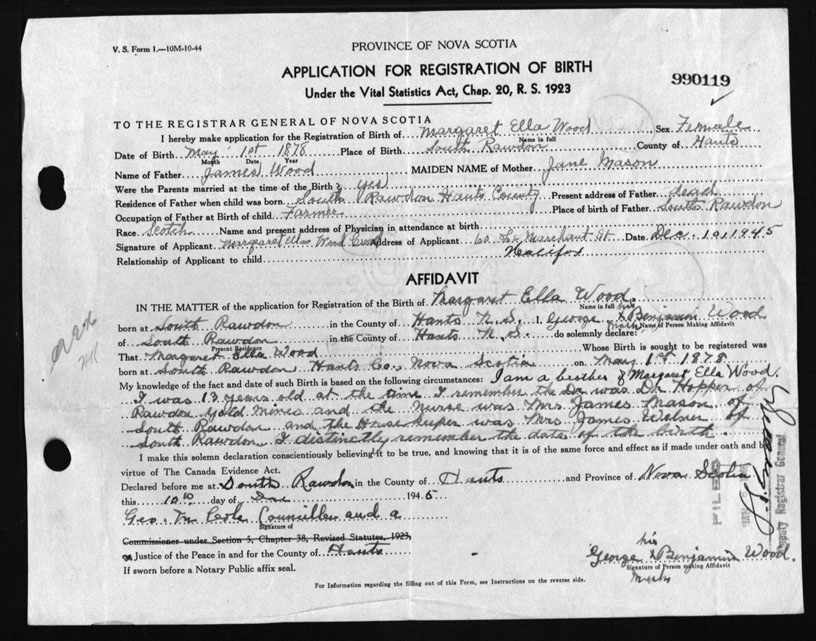 V. S. Form 1.—10M-10-44
PROVINCE OF NOVA SCOTIA
APPLICATION FOR REGISTRATION OF BIRTH
990119
Under the Vital Statistics Act, Chap. 20, R. S. 1923
TO THE REGISTRAR GENERAL OF NOVA SCOTIA
I hereby make application for the Registration of Birth of Margaret Ella Wood Sex Female
Name in full
Date of Birth May 1st 1878 Place of Birth South Rawdon County of Hants
Month Date Year
Name of Father James Wood MAIDEN NAME of Mother Jane Mason
Were the Parents married at the time of the Birth? yes
Residence of Father when child was born South Rawdon Hants County Present address of Father dead
Occupation of Father at Birth of child Farmer Place of birth of Father South Rawdon
Race Scotch Name and present address of Physician in attendance at birth
Signature of Applicant Margaret Ella Wood Address of Applicant 60 Le Marchant St Date Dec 10, 1945
Halifax
Relationship of Applicant to child
AFFIDAVIT
IN THE MATTER of the application for Registration of the Birth of Margaret Ella Wood
Name in full his
born at South Rawdon in the County of Hants N.S. I, George X Benjamin Wood
mark Name of Person Making Affidavit
of South Rawdon in the County of Hants N.S. do solemnly declare:
Present Residence
That Margaret Ella Wood Whose Birth is sought to be registered was
born at South Rawdon Hants Co., Nova Scotia on May 1st 1878
My knowledge of the fact and date of such Birth is based on the following circumstances: I am a brother of Margaret Ella Wood.
I was 13 years old at the time I remember the Dr was Dr Hopper of
Rawdon Gold Mines and the Nurse was Mrs. James Mason of
South Rawdon and the House keeper was Mrs James of
South Rawdon I distinctly remember the date of the birth.
I make this solemn declaration conscientiously believing it to be true, and knowing that it is of the same force and effect as if made under oath and by
virtue of The Canada Evidence Act.
Declared before me at South Rawdon in the County of Hants and Province of Nova Scotia
this 10th day of Dec 1945
Geo. Cole Councillor and a
Signature of
Commissioner under Section 5, Chapter 38, Revised Statutes, 1923,
Justice of the Peace in and for the County of Hants
If sworn before a Notary Public affix seal.
his
George X Benjamin Wood.
Signature of Person making Affidavit
mark
For Information regarding the filling out of this Form, see Instructions on the reverse side.
FILED
Deputy Registrar General